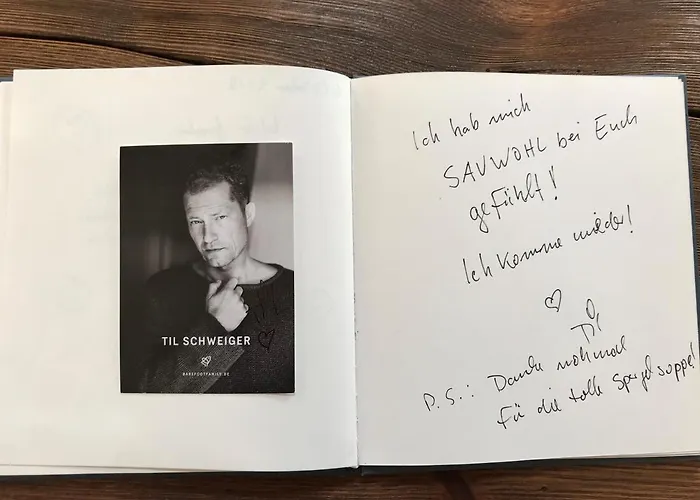 TIL SCHWEIGER
BAREFOOTFAMILY.DE
Ich hab mich
SAUWOHL bei Euch
gefühlt!
Ich komme wieder!
Til
P.S.: Danke nochmal
für die tolle Spargelsuppe!